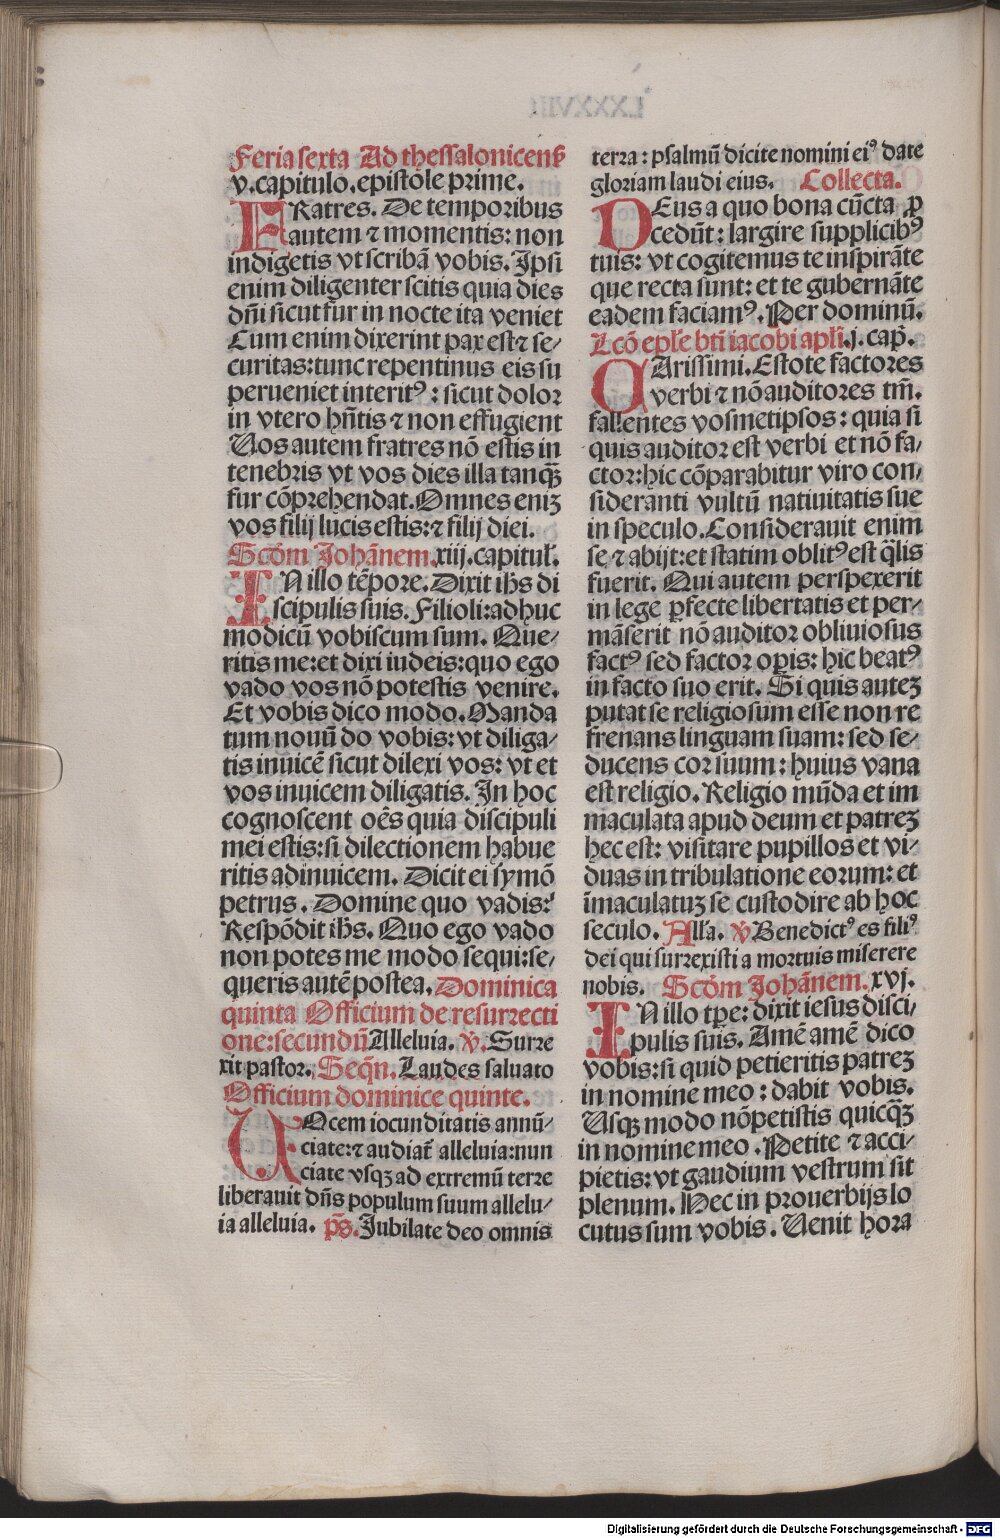 Feria sexta Ad thessalonicenß
v. capitulo. epistole prime.
FRatres. De temporibus
autem ⁊ momentis: non
indigetis vt scribā vobis. Ipsi
enim diligenter scitis quia dies
dñi sicut fur in nocte ita veniet
Cum enim dixerint pax est ⁊ se⸗
curitas: tunc repentinus eis su
perueniet interitꝰ: sicut dolor
in vtero hñtis ⁊ non effugient
Uos autem fratres nō estis in
tenebris vt vos dies illa tanqꝫ
fur cōprehendat. Omnes eniꝫ
vos filij lucis estis: ⁊ filij diei.
Scōm Johānem. xiij. capituł.
IN illo tēpore. Dixit ihs di
scipulis suis. Filioli: adhuc
modicū vobiscum sum. Que⸗
ritis me: et dixi iudeis: quo ego
vado vos nō potestis venire.
Et vobis dico modo. Manda
tum nouū do vobis: vt diliga⸗
tis inuicē sicut dilexi vos: vt et
vos inuicem diligatis. In hoc
cognoscent oēs quia discipuli
mei estis: si dilectionem habue
ritis adinuicem. Dicit ei symō
petrus. Domine quo vadis?
Respōdit ihs. Quo ego vado
non potes me modo sequi: se⸗
queris autē postea. Dominica
quinta Officium de resurrecti
one: secundū Alleluia. ℣. Surre
xit pastor. Seqñ. Laudes saluato
Officium dominice quinte.
UOcem iocunditatis annū⸗
ciate: ⁊ audiat̄ alleluia: nun
ciate vsqꝫ ad extremū terre
liberauit dñs populum suum allelu⸗
ia alleluia. p̄s. Jubilate deo omnis
terra: psalmū dicite nomini eiꝰ date
gloriam laudi eius. Collecta.
DEus a quo bona cūcta ꝓ
cedūt: largire supplicibꝰ
tuis: vt cogitemus te inspirāte
que recta sunt: et te gubernāte
eadem faciamꝰ. Per dominū.
Lcō epłe bti iacobi apłi. j. cap̄.
CArissimi. Estote factores
verbi ⁊ nō auditores tm̄.
fallentes vosmetipsos: quia si
quis auditor est verbi et nō fa⸗
ctor: hic cōparabitur viro con⸗
sideranti vultū natiuitatis sue
in speculo. Considerauit enim
se ⁊ abijt: et statim oblitꝰ est q̄lis
fuerit. Qui autem perspexerit
in lege ꝑfecte libertatis et per⸗
māserit nō auditor obliuiosus
factꝰ sed factor oꝑis: hic beatꝰ
in facto suo erit. Si quis auteꝫ
putat se religiosum esse non re
frenans linguam suam: sed se⸗
ducens cor suum: huius vana
est religio. Religio mūda et im
maculata apud deum et patreꝫ
hec est: visitare pupillos et vi⸗
duas in tribulatione eorum: et
īmaculatuꝫ se custodire ab hoc
seculo. Alła. ℣ Benedictꝰ es filiꝰ
dei qui surrexisti a mortuis miserere
nobis. Scōm Johānem. xvj.
IN illo tꝑe: dixit iesus disci⸗
pulis suis. Amē amē dico
vobis: si quid petieritis patreꝫ
in nomine meo: dabit vobis.
Usqꝫ modo nō petistis quicqꝫ
in nomine meo. Petite ⁊ acci⸗
pietis: vt gaudium vestrum sit
plenum. Nec in prouerbijs lo
cutus sum vobis. Uenit hora
Digitalisierung gefördert durch die Deutsche Forschungsgemeinschaft - DFG